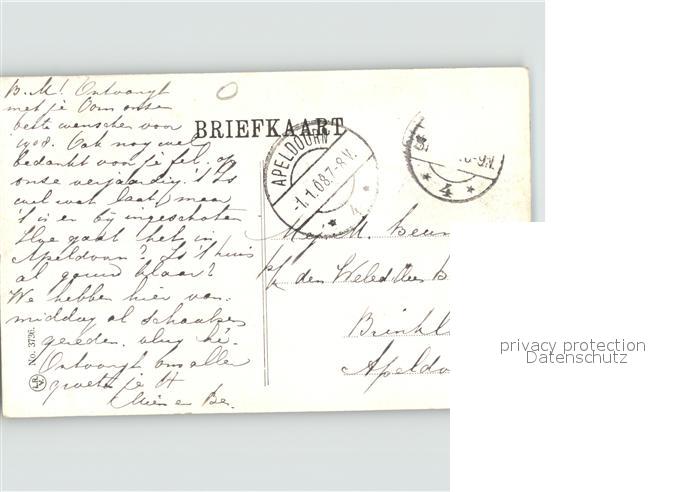 B. M! Ontvangt
met je Oom onze
beste wenschen voor
1908. Ook nog wel
bedankt voor je fel. op
onze verjaardig. 't Is
wel wat laat, maar
't is er bij ingeschoten
Hoe gaat het in
Apeldoorn? Is 't huis
al gauw klaar?
We hebben hier van-
middag al schaatsen
gereden. vlug hè.
Ontvangt van allen
groeten je
Mien en Be.
No. 3736.
BRIEFKAART
APELDOORN
-1.1.08.7-8.V.
* 4 *
-9.V.
* 4 *
Mej. M.
p/a den Weled. Heer
Brinkl
Apeldo
privacy protection
Datenschutz